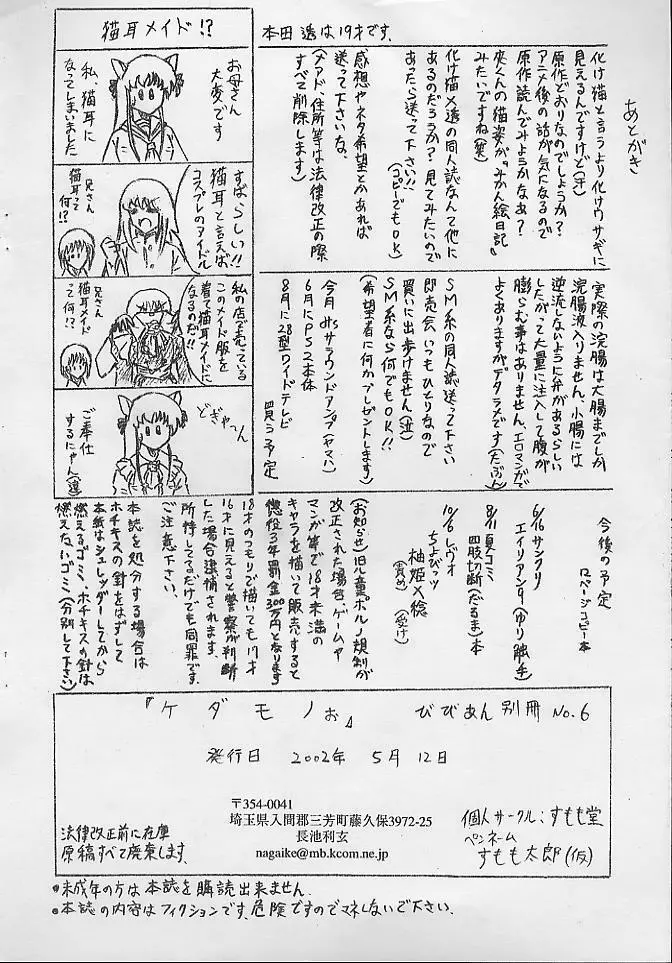 あとがき
化け猫と言うより化けウサギに
見えるんですけど(汗)
原作どおりなのでしょうか?
アニメ後の話が気になるので
原作読んでみようかなぁ?
夾くんの猫姿が『みかん絵日記』
みたいですね(笑)
化け猫×透の同人誌なんて他に
あるのだろうか?見てみたいので
あったら送って下さい!!
(コピーでもOK)
感想やネタ希望とかあれば
送って下さいな。
(メアド、住所等は法律改正の際
すべて削除します)
本田 透は19才です。
猫耳メイド!?
お母さん
大変です
私、猫耳に
なってしまいました
すばらしい!!
猫耳と言えば
コスプレのアイドル
兄さん
猫耳って
何!?
私の店で売っている
このメイド服を
着て猫耳メイドに
なるのだ!!
兄さん
猫耳メイド
って何!?
どぎゃーん
ご奉仕
するにゃん(違)
実際の浣腸は大腸までしか
浣腸液入りません。小腸には
逆流しないように弁があるらしい
したがって大量に注入して腹が
膨らむ事はありません、エロマンガで
よくありますがデタラメです(たぶん)
SM系の同人誌送って下さい
即売会いつもひとりなので
買いに出歩けません(泣)
SM系なら何でもOK!!
(希望者に何かプレゼントします)
今月 5.1chサラウンドアンプ(ヤマハ)
6月にPS2本体
8月に28型ワイドテレビ
買う予定
今後の予定
12ページコピー本
6/16 サンクリ
エイリアン9(ゆり触手)
8/11 夏コミ
四肢切断(だるま)本
10/6 レヴォ
ちょびッツ
柚姫×稔
(責め) (受け)
(お知らせ)旧児童ポルノ規制が
改正された場合、ゲームや
マンガ等で18才未満の
キャラを描いて販売すると
懲役3年罰金300万円となります
18才のつもりで描いても17才
16才に見えると警察が判断
した場合逮捕されます。
所持してるだけでも同罪です。
ご注意下さい。
本誌を処分する場合は
ホチキスの針をはずして
本紙はシュレッダーしてから
燃えるゴミ、ホチキスの針は
燃えないゴミ(分別して下さい)
『ケダモノぉ』 びびあん別冊 No.6
発行日 2002年 5月12日
〒354-0041
埼玉県入間郡三芳町藤久保3972-25
長池利玄
nagaike@mb.kcom.ne.jp
個人サークル:すもも堂
ペンネーム
すもも太郎(仮)
法律改正前に在庫
原稿すべて廃棄します。
●未成年の方は本誌を購読出来ません。
●本誌の内容はフィクションです、危険ですのでマネしないで下さい。